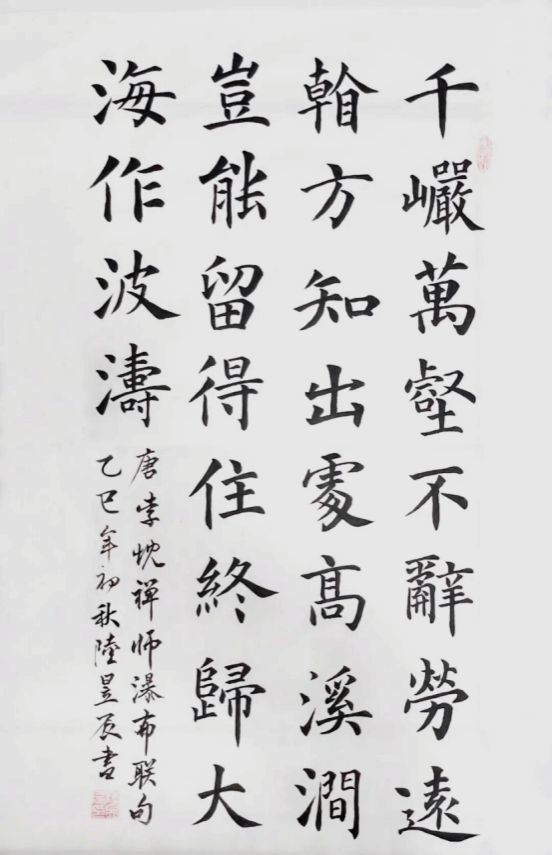 千巗萬壑不辭勞遠
方知出處髙溪澗
豈能留得住終歸大
海作波濤
唐李忱禅师瀑布联句
乙巳年初秋陸昱辰書